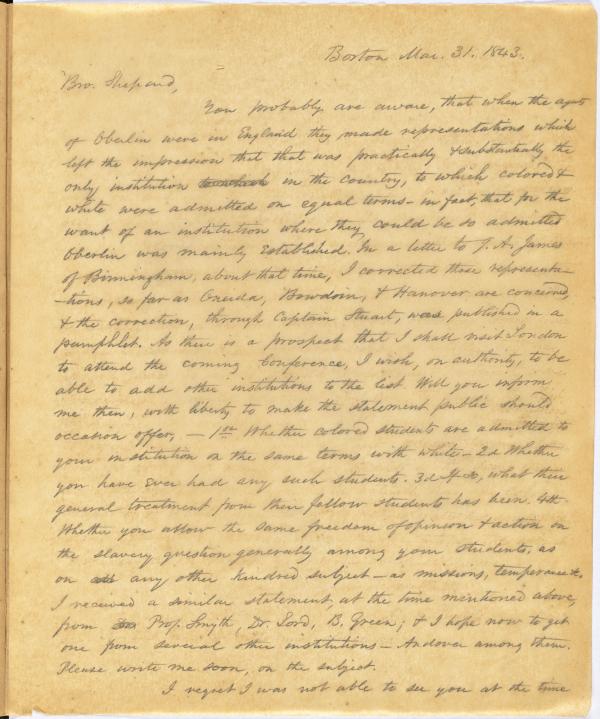 Boston Mar. 31. 1843.
Bro. Shepard,
You probably are aware, that when the agts
of Oberlin were in England they made representations which
left the impression that that was practically & substantially the
only institution in the country, to which colored &
white were admitted on equal terms - in fact, that for the
want of an institution where they could be so admitted
Oberlin was mainly established. In a letter to J. A. James
of Birmingham, about that time, I corrected these representa-
-tions, so far as Oneida, Bowdoin, & Hanover are concerned,
& the correction, through Captain Stuart, was published in a
pamphlet. As there is a prospect that I shall visit London
to attend the coming Conference, I wish, on authority, to be
able to add other institutions to the list. Will you inform
me then, with liberty to make the statement public should
occasion offer, — 1st Whether colored students are admitted to
your institution on the same terms with white - 2d Whether
you have ever had any such students. 3d If so, what their
general treatment from their fellow students has been. 4th
Whether you allow the same freedom of opinion & action on
the slavery question generally among your students, as
on any other kindred subject - as missions, temperance &c.
I received a similar statement, at the time mentioned above,
from Prof. Smyth, Dr. Lord, B. Green; & I hope now to get
one from several other institutions - Andover among them.
Please write me soon, on the subject.
I regret I was not able to see you at the time